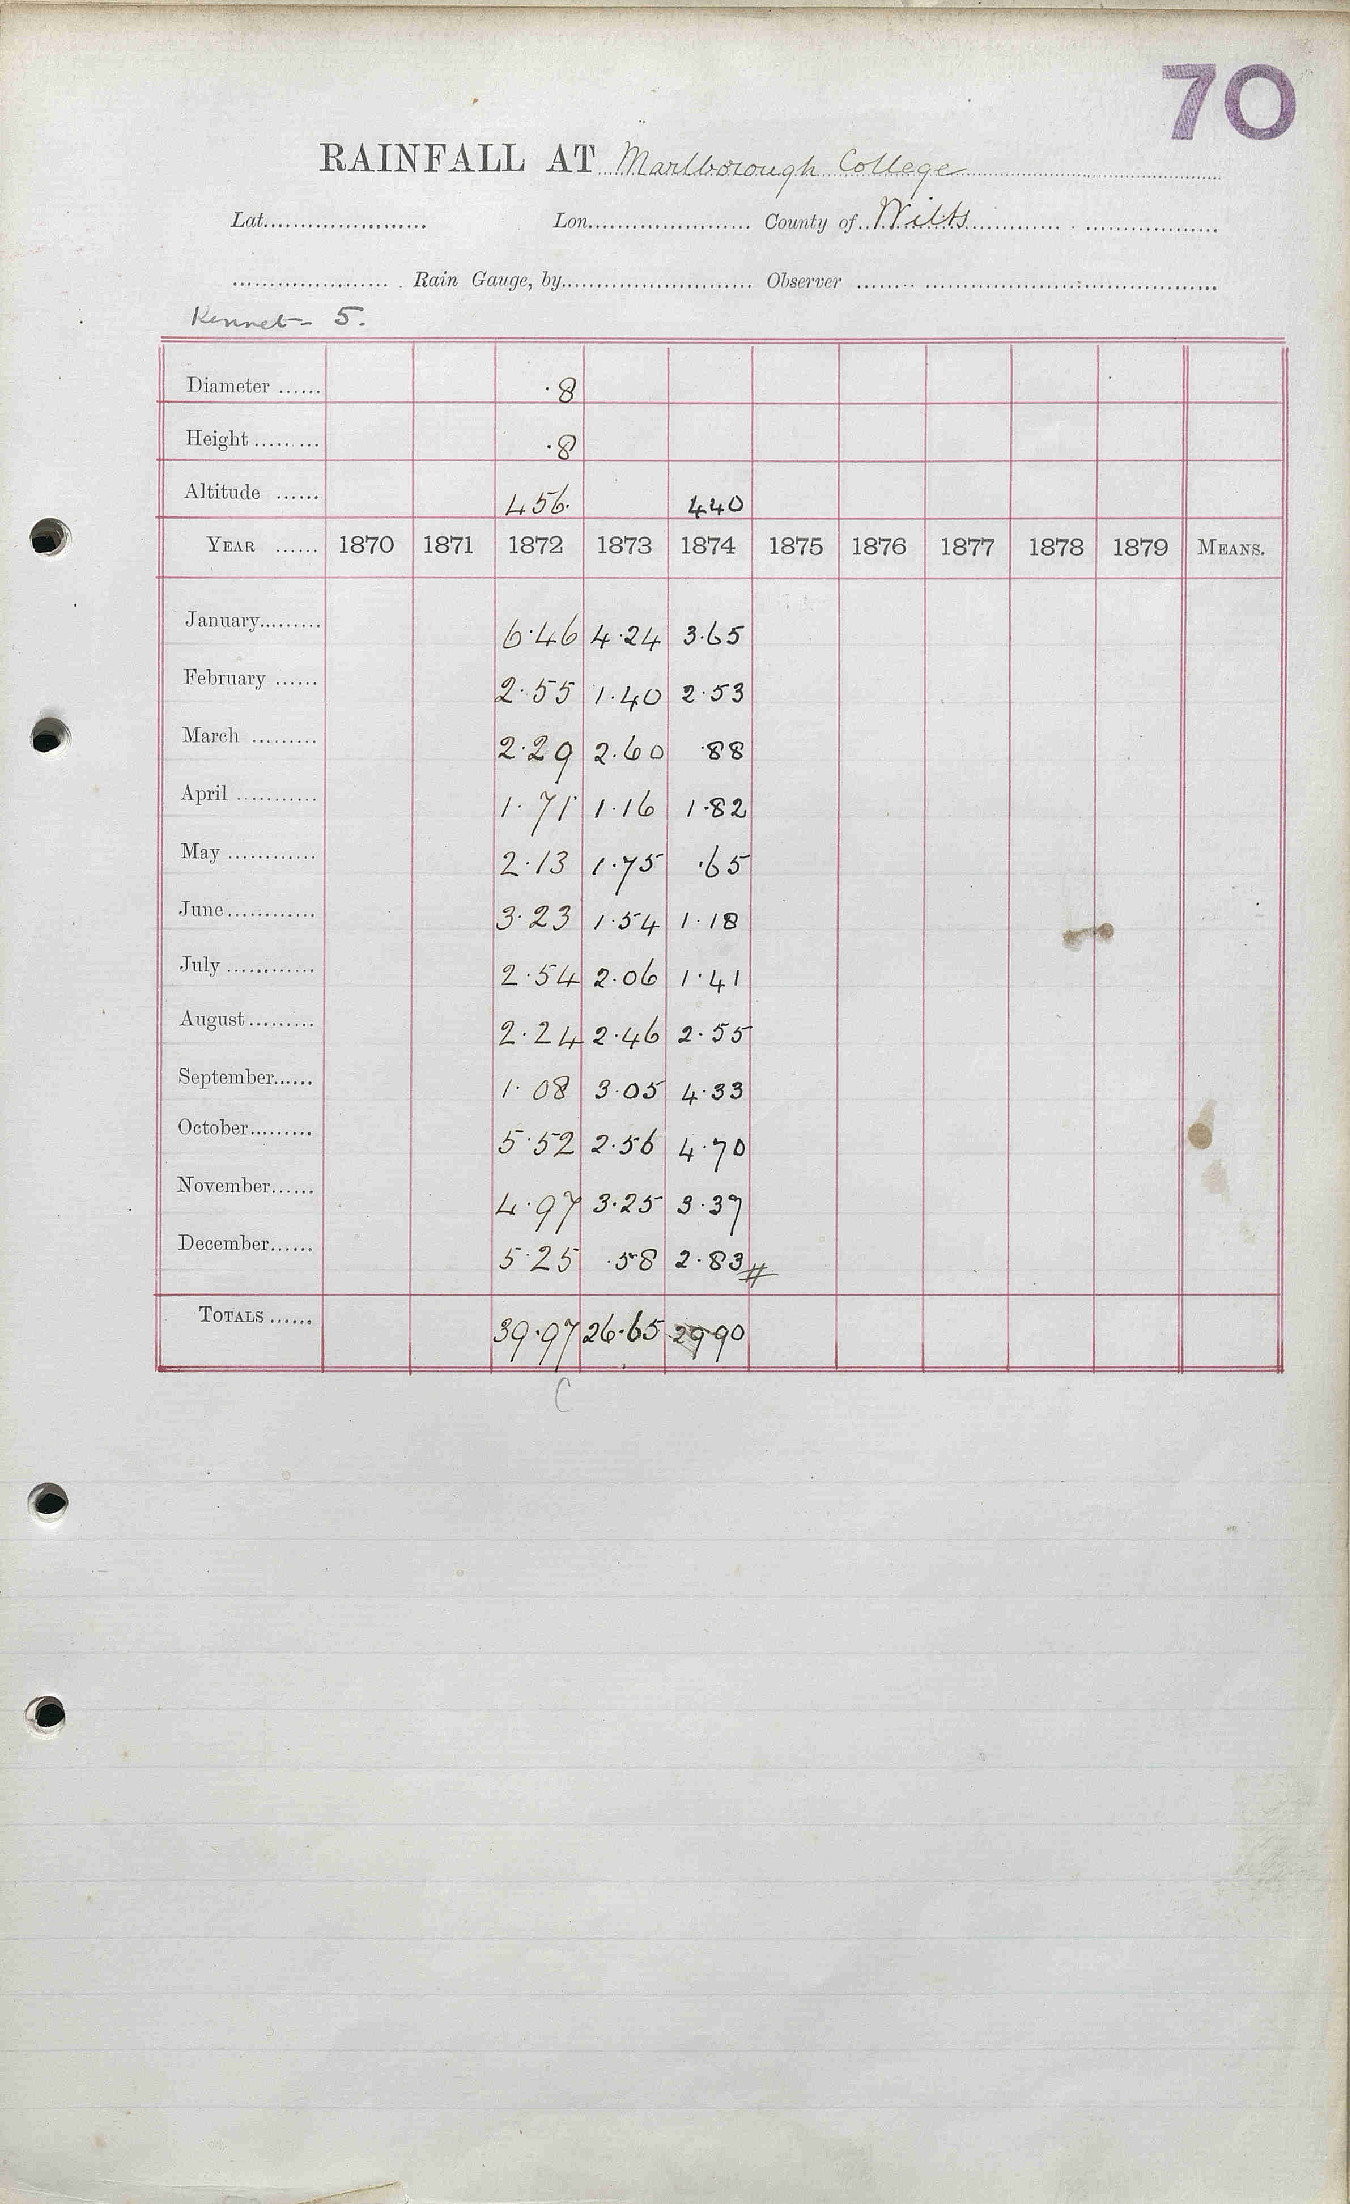 70
RAINFALL AT Marlborough College
Lat. Lon. County of Wilts
Rain Gauge, by Observer
Kennet - 5.
Diameter ...... ·8
Height ......... ·8
Altitude ...... 456. 440
YEAR ...... 1870 1871 1872 1873 1874 1875 1876 1877 1878 1879 MEANS.
January......... 6·46 4·24 3·65
February ...... 2·55 1·40 2·53
March ......... 2·29 2·60 ·88
April ........... 1·71 1·16 1·82
May ............ 2·13 1·75 ·65
June............ 3·23 1·54 1·18
July ............ 2·54 2·06 1·41
August......... 2·24 2·46 2·55
September...... 1·08 3·05 4·33
October......... 5·52 2·56 4·70
November...... 4·97 3·25 3·37
December...... 5·25 ·58 2·83 #
TOTALS ...... 39·97 26·65 29·90
C